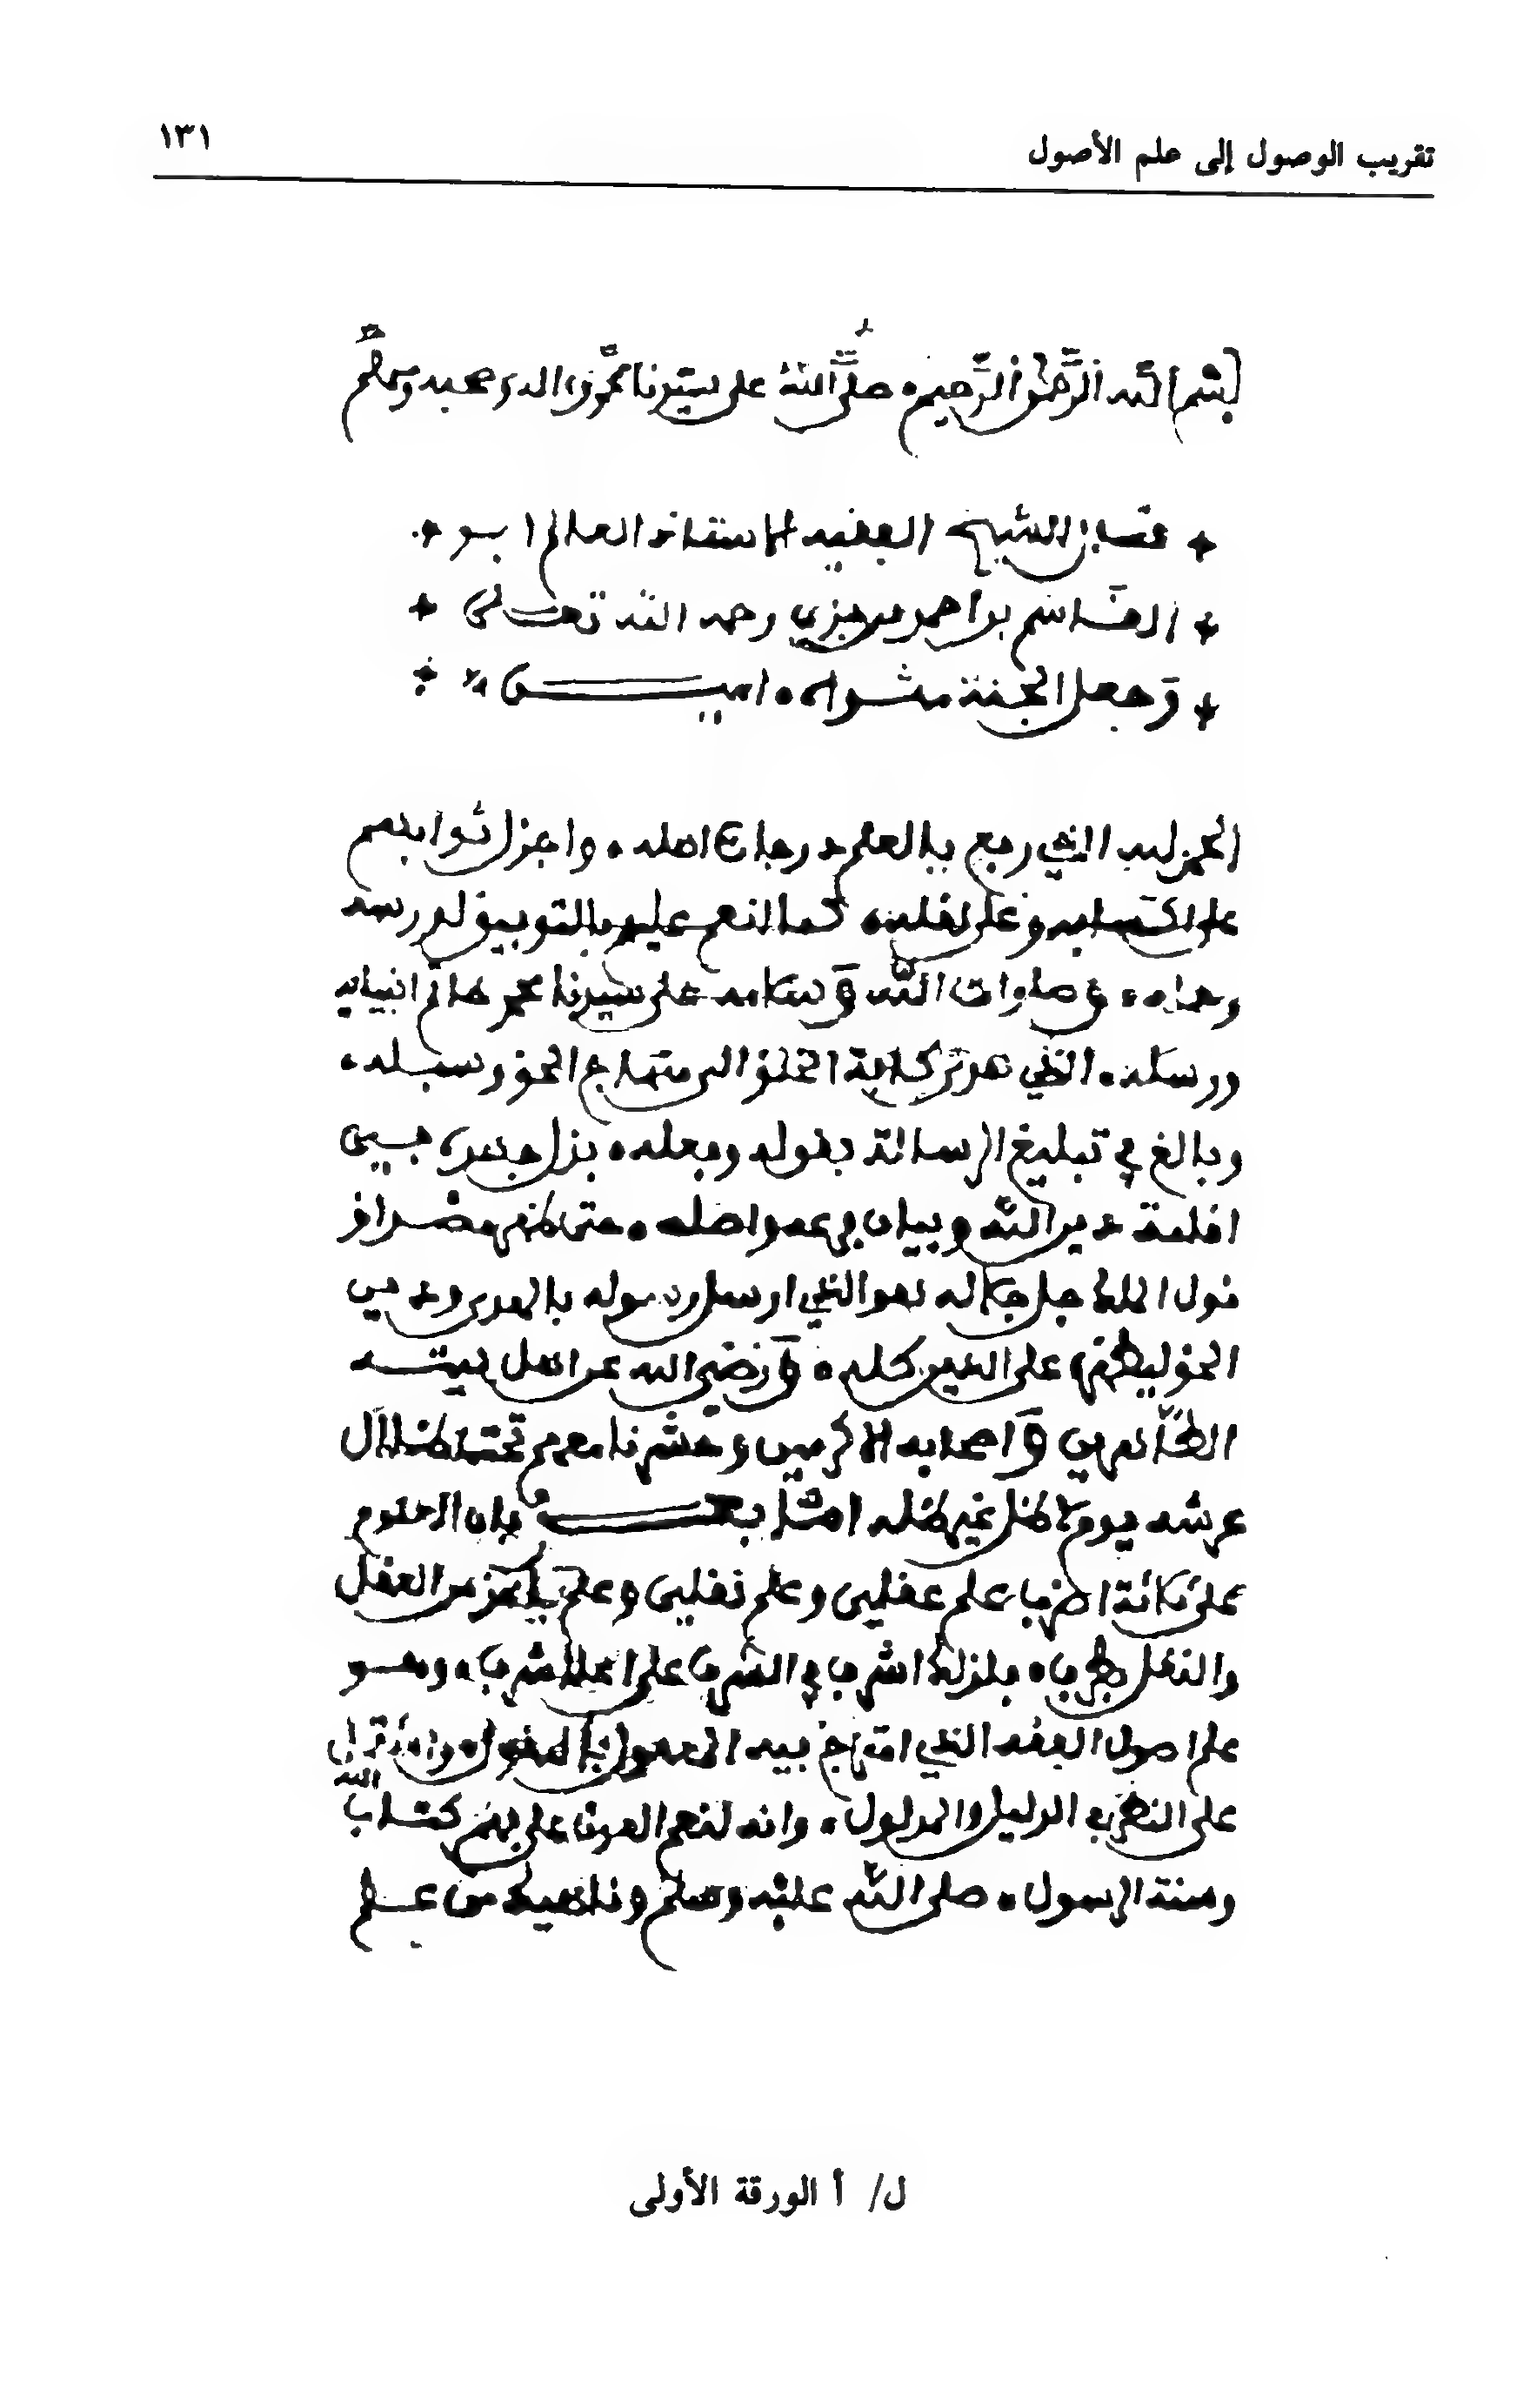 تقريب الوصول إلى علم الأصول
١٣١
بسم الله الرحمن الرحيم صلى الله على سيدنا محمد واله وصحبه وسلم
قال الشيخ الفقيه الاستاذ العالم ابو
القاسم بن احمد بن جزي رحمه الله تعالى
وجعل الجنة مثواه امين
الحمد لله الذي رفع بالعلم درجات اهله واجزل ثوابهم
على اكتسابه وعلى نقله كما انعم عليهم بالتوفيق لدرسه
وحمله وصلوات الله وسلامه على سيدنا محمد خاتم انبيايه
ورسله الذي هدى كافة الخلق الى منهاج الحق وسبله
وبالغ في تبليغ الرسالة بقوله وفعله بذل جهده في
اقامة دين الله وبيان فرعه واصله حتى ظهر مصداق
قول الملك جل جلاله هو الذي ارسل رسوله بالهدى ودين
الحق ليظهره على الدين كله ورضي الله عن اهل بيته
الطاهرين واصحابه الاكرمين وحشرنا معهم تحت ظلال
عرشه يوم لا ظل غير ظله اما بعد فان العلوم
على ثلاثة اضرب علم عقلي وعلم نقلي وعلم ياخذ من العقل
والنقل بطرف فلذلك اشرف في الشرف على اعلا شرف وهو
علم اصول الفقه الذي امتزج فيه المعقول بالمنقول واشتمل
على النظر في الدليل والمدلول وانه لنعم العون على فهم كتاب الله
وسنة الرسول صلى الله عليه وسلم وناهيك من علم
ل/ أ الورقة الأولى